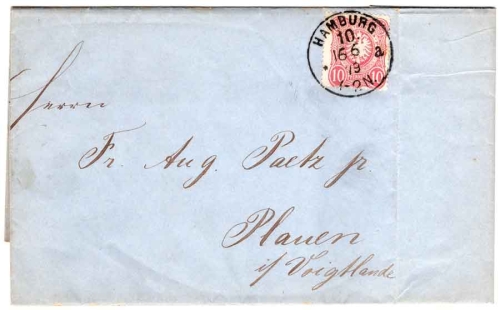 HAMBURG
10.
16 6 a
79
1-2N.
10 10
Herrn
Fr. Aug. Paetz jr.
Plauen
i/ Voigtlande